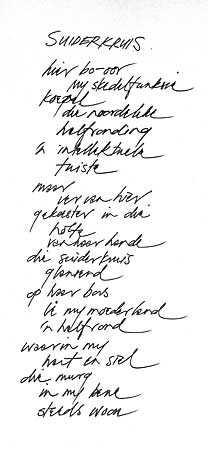 SUIDERKRUIS.
hier bo-oor
my skedelfunksie
koepel
die noordelike
halfronding
'n intellektuele
tuiste
maar
ver van hier
gekoester in die
holte
van haar hande
die suiderkruis
glansend
op haar bors
lê my moederland
'n halfrond
waarin my
hart en siel
die murg
in my bene
steeds woon